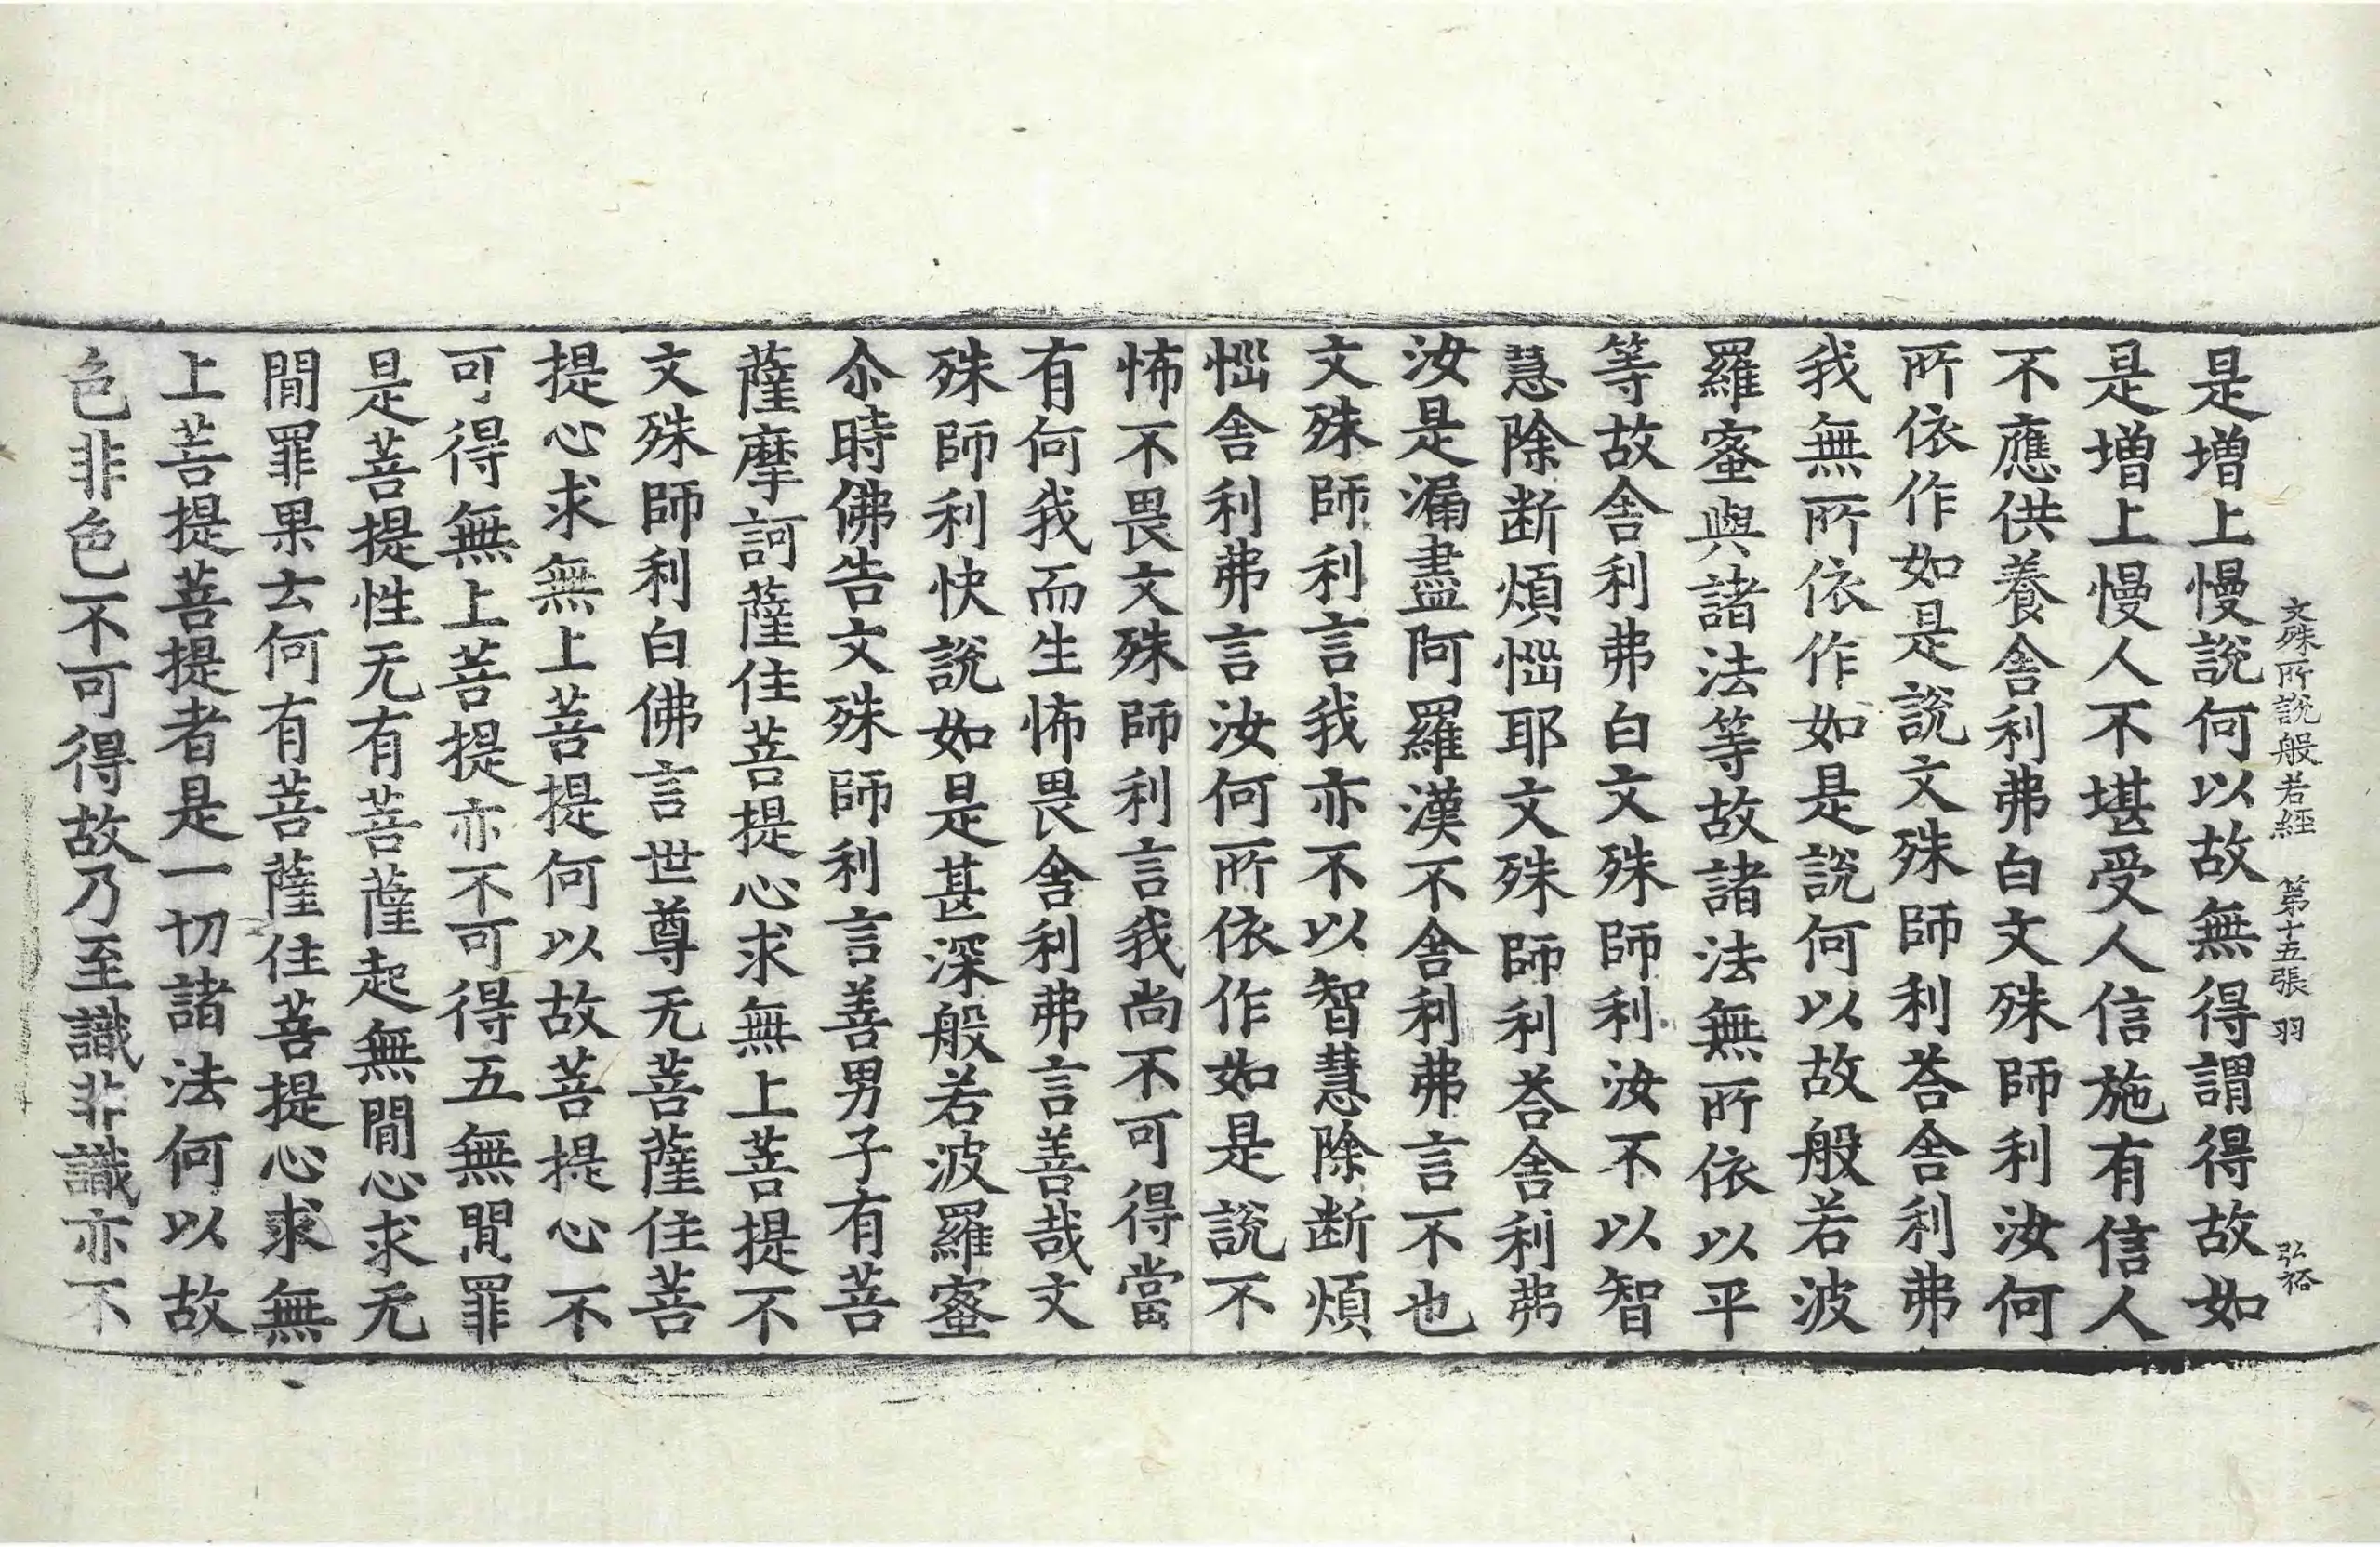 文殊所說般若經 第十五張 羽 弘裕
是增上慢說何以故無得謂得故如
是增上慢人不堪受人信施有信人
不應供養舎利弗白文殊師利汝何
所依作如是說文殊師利荅舎利弗
我無所依作如是說何以故般若波
羅蜜與諸法等故諸法無所依以平
等故舎利弗白文殊師利汝不以智
慧除断煩惱耶文殊師利荅舎利弗
汝是漏盡阿羅漢不舎利弗言不也
文殊師利言我亦不以智慧除断煩
惱舎利弗言汝何所依作如是說不
怖不畏文殊師利言我尚不可得當
有何我而生怖畏舎利弗言善哉文
殊師利快說如是甚深般若波羅蜜
尒時佛告文殊師利言善男子有菩
薩摩訶薩住菩提心求無上菩提不
文殊師利白佛言世尊无菩薩住菩
提心求無上菩提何以故菩提心不
可得無上菩提亦不可得五無閒罪
是菩提性无有菩薩起無閒心求无
閒罪果云何有菩薩住菩提心求無
上菩提菩提者是一切諸法何以故
色非色不可得故乃至識非識亦不